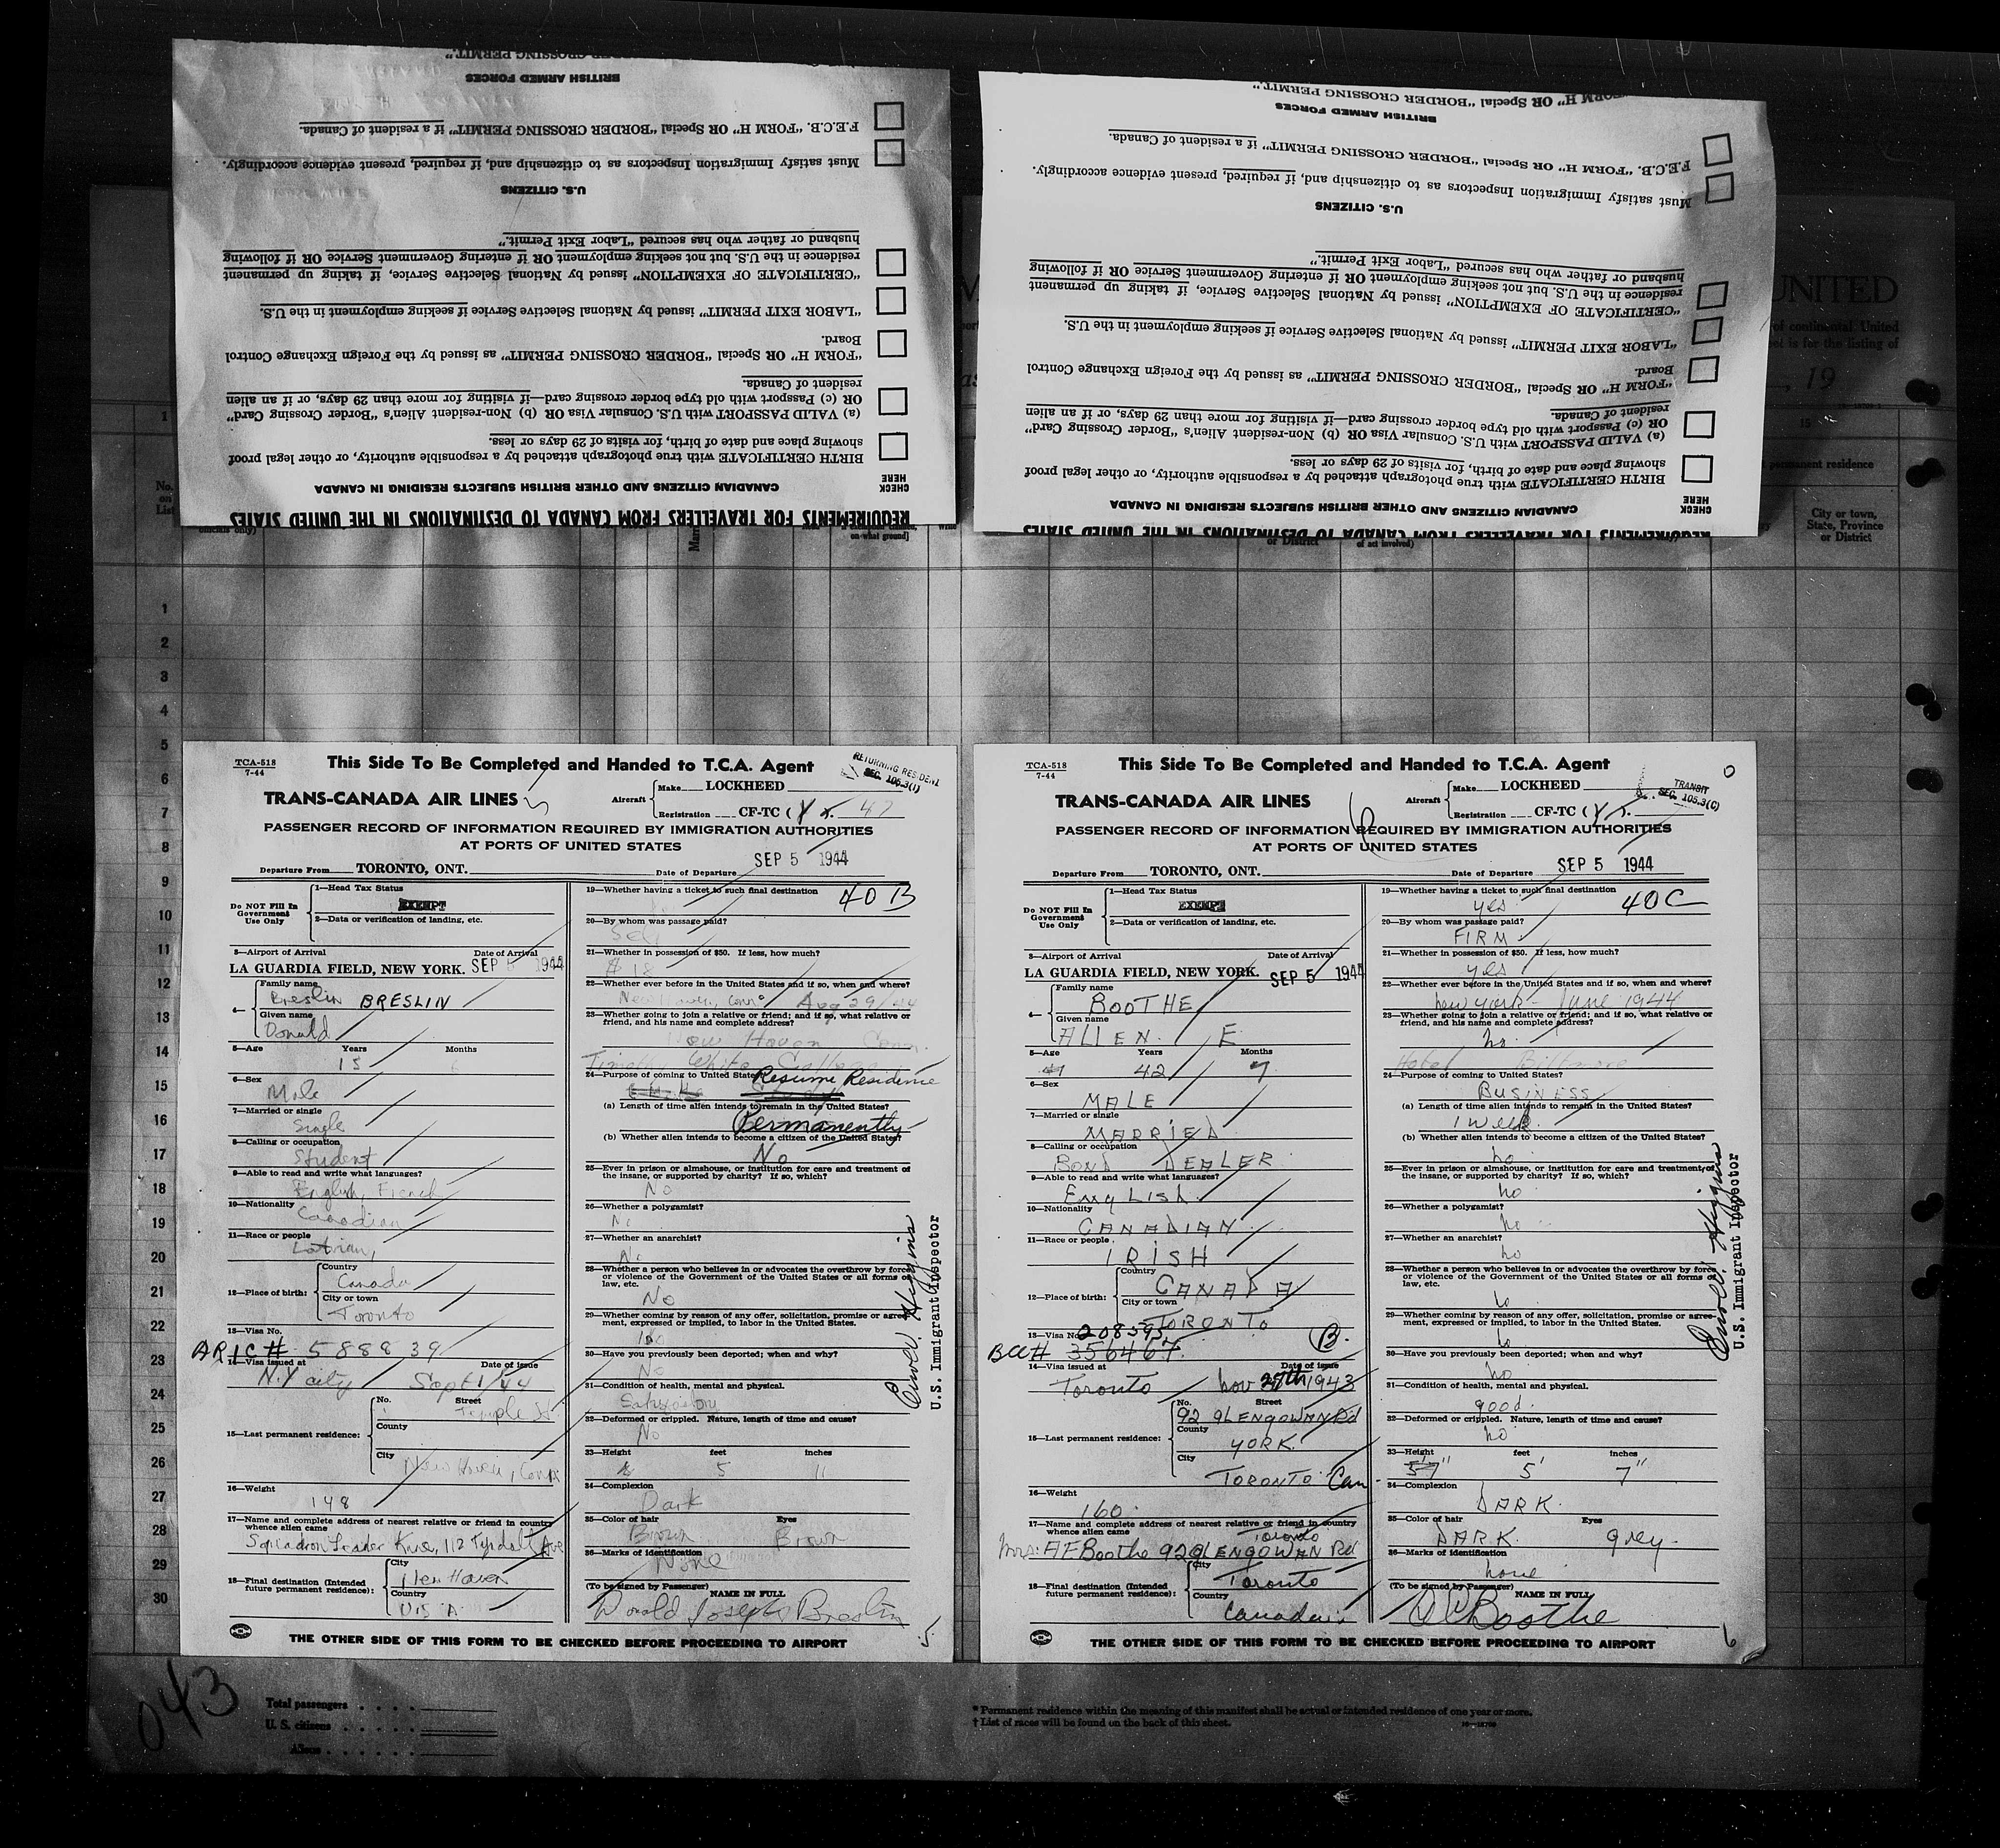 BRITISH ARMED FORCES
F.E.C.B. "FORM H" OR Special "BORDER CROSSING PERMIT" if a resident of Canada.
Must satisfy Immigration Inspectors as to citizenship and, if required, present evidence accordingly.
U.S. CITIZENS
husband or father who has secured "Labor Exit Permit."
residence in the U.S. but not seeking employment OR if entering Government Service OR if following
"CERTIFICATE OF EXEMPTION" issued by National Selective Service, if taking up permanent
"LABOR EXIT PERMIT" issued by National Selective Service if seeking employment in the U.S.
Board.
"FORM H" OR Special "BORDER CROSSING PERMIT" as issued by the Foreign Exchange Control
resident of Canada.
OR (c) Passport with old type border crossing card—if visiting for more than 29 days, or if an alien
(a) VALID PASSPORT with U.S. Consular Visa OR (b) Non-resident Alien's "Border Crossing Card"
showing place and date of birth, for visits of 29 days or less.
BIRTH CERTIFICATE with true photograph attached by a responsible authority, or other legal proof
CHECK HERE
CANADIAN CITIZENS AND OTHER BRITISH SUBJECTS RESIDING IN CANADA
REQUIREMENTS FOR TRAVELLERS FROM CANADA TO DESTINATIONS IN THE UNITED STATES
BRITISH ARMED FORCES
F.E.C.B. "FORM H" OR Special "BORDER CROSSING PERMIT" if a resident of Canada.
Must satisfy Immigration Inspectors as to citizenship and, if required, present evidence accordingly.
U.S. CITIZENS
husband or father who has secured "Labor Exit Permit."
residence in the U.S. but not seeking employment OR if entering Government Service OR if following
"CERTIFICATE OF EXEMPTION" issued by National Selective Service, if taking up permanent
"LABOR EXIT PERMIT" issued by National Selective Service if seeking employment in the U.S.
Board.
"FORM H" OR Special "BORDER CROSSING PERMIT" as issued by the Foreign Exchange Control
resident of Canada.
OR (c) Passport with old type border crossing card—if visiting for more than 29 days, or if an alien
(a) VALID PASSPORT with U.S. Consular Visa OR (b) Non-resident Alien's "Border Crossing Card"
showing place and date of birth, for visits of 29 days or less.
BIRTH CERTIFICATE with true photograph attached by a responsible authority, or other legal proof
CHECK HERE
CANADIAN CITIZENS AND OTHER BRITISH SUBJECTS RESIDING IN CANADA
REQUIREMENTS FOR TRAVELLERS FROM CANADA TO DESTINATIONS IN THE UNITED STATES
UNITED
of continental United
is for the listing of
, 19
15
permanent residence
City or town,
State, Province
or District
on what ground)
or District
of act involved)
1
2
3
4
5
6
7
8
9
10
11
12
13
14
15
16
17
18
19
20
21
22
23
24
25
26
27
28
29
30
TCA-518
7-44
This Side To Be Completed and Handed to T.C.A. Agent
RETURNING RESIDENT
SEC. 105.3(1)
TRANS-CANADA AIR LINES
5
Aircraft Make LOCKHEED
Registration CF-TC ( 47
PASSENGER RECORD OF INFORMATION REQUIRED BY IMMIGRATION AUTHORITIES
AT PORTS OF UNITED STATES
Departure From TORONTO, ONT. Date of Departure SEP 5 1944
Do NOT Fill In Government Use Only
1—Head Tax Status
EXEMPT
2—Data or verification of landing, etc.
3—Airport of Arrival Date of Arrival
LA GUARDIA FIELD, NEW YORK. SEP 5 1944
4— Family name
Breslin BRESLIN
Given name
Donald
5—Age Years Months
15 6
6—Sex
Male
7—Married or single
Single
8—Calling or occupation
Student
9—Able to read and write what languages?
English, French
10—Nationality
Canadian
11—Race or people
Latvian,
12—Place of birth: Country
Canada
City or town
Toronto
13—Visa No.
ARIC # 5888839
14—Visa issued at Date of issue
N.Y city Sept 1/44
15—Last permanent residence: No. Street
Temple St
County
City
New Haven, Conn
16—Weight
148
17—Name and complete address of nearest relative or friend in country
whence alien came
Squadron Leader 112 Tyndall Ave
18—Final destination (Intended future permanent residence): City
New Haven
Country
U.S.A.
19—Whether having a ticket to such final destination
40 B
20—By whom was passage paid?
Self
21—Whether in possession of $50. If less, how much?
$ 18
22—Whether ever before in the United States and if so, when and where?
New Haven, Conn Aug 29/44
23—Whether going to join a relative or friend; and if so, what relative or
friend, and his name and complete address?
New Haven Conn.
24—Purpose of coming to United States
Resume Residence
(a) Length of time alien intends to remain in the United States?
Permanently
(b) Whether alien intends to become a citizen of the United States?
No
25—Ever in prison or almshouse, or institution for care and treatment of
the insane, or supported by charity? If so, which?
No
26—Whether a polygamist?
No
27—Whether an anarchist?
No
28—Whether a person who believes in or advocates the overthrow by force
or violence of the Government of the United States or all forms of
law, etc.
No
29—Whether coming by reason of any offer, solicitation, promise or agree-
ment, expressed or implied, to labor in the United States.
No
30—Have you previously been deported; when and why?
No
31—Condition of health, mental and physical.
Satisfactory
32—Deformed or crippled. Nature, length of time and cause?
No
33—Height feet inches
5 11
34—Complexion
Dark
35—Color of hair Eyes
Brown Brown
36—Marks of identification
None
(To be signed by Passenger) NAME IN FULL
Donald Joseph Breslin
U.S. Immigrant Inspector
THE OTHER SIDE OF THIS FORM TO BE CHECKED BEFORE PROCEEDING TO AIRPORT
5
TCA-518
7-44
This Side To Be Completed and Handed to T.C.A. Agent
0
TRANSIT
SEC. 105.3(C)
TRANS-CANADA AIR LINES
6
Aircraft Make LOCKHEED
Registration CF-TC (
PASSENGER RECORD OF INFORMATION REQUIRED BY IMMIGRATION AUTHORITIES
AT PORTS OF UNITED STATES
Departure From TORONTO, ONT. Date of Departure SEP 5 1944
Do NOT Fill In Government Use Only
1—Head Tax Status
EXEMPT
2—Data or verification of landing, etc.
3—Airport of Arrival Date of Arrival
LA GUARDIA FIELD, NEW YORK. SEP 5 1944
4— Family name
BOOTHE
Given name
ALLEN. E
5—Age Years Months
42 7
6—Sex
MALE
7—Married or single
MARRIED
8—Calling or occupation
BOND DEALER
9—Able to read and write what languages?
English
10—Nationality
CANADIAN
11—Race or people
IRISH
12—Place of birth: Country
CANADA
City or town
TORONTO
13—Visa No. 208595
BCC# 356467. B.
14—Visa issued at Date of issue
Toronto Nov 27th 1943
15—Last permanent residence: No. Street
92 GLENGOWAN Rd
County
YORK
City
TORONTO Can
16—Weight
160
17—Name and complete address of nearest relative or friend in country
whence alien came Toronto
Mrs. AE Boothe 92 GLENGOWAN Rd
18—Final destination (Intended future permanent residence): City
Toronto
Country
Canada
19—Whether having a ticket to such final destination
yes 40C
20—By whom was passage paid?
FIRM
21—Whether in possession of $50. If less, how much?
yes
22—Whether ever before in the United States and if so, when and where?
New York - June 1944
23—Whether going to join a relative or friend; and if so, what relative or
friend, and his name and complete address?
no.
Hotel Biltmore
24—Purpose of coming to United States?
BUSINESS
(a) Length of time alien intends to remain in the United States?
1 week
(b) Whether alien intends to become a citizen of the United States?
no
25—Ever in prison or almshouse, or institution for care and treatment of
the insane, or supported by charity? If so, which?
no
26—Whether a polygamist?
no
27—Whether an anarchist?
no
28—Whether a person who believes in or advocates the overthrow by force
or violence of the Government of the United States or all forms of
law, etc.
no
29—Whether coming by reason of any offer, solicitation, promise or agree-
ment, expressed or implied, to labor in the United States.
no
30—Have you previously been deported; when and why?
no
31—Condition of health, mental and physical.
good.
32—Deformed or crippled. Nature, length of time and cause?
no
33—Height feet inches
5'7" 5' 7"
34—Complexion
DARK.
35—Color of hair Eyes
DARK. grey.
36—Marks of identification
none
(To be signed by Passenger) NAME IN FULL
AE Boothe
U.S. Immigrant Inspector
THE OTHER SIDE OF THIS FORM TO BE CHECKED BEFORE PROCEEDING TO AIRPORT
6
043
Total passengers
U. S. citizens
Aliens
* Permanent residence within the meaning of this manifest shall be actual or intended residence of one year or more.
† List of races will be found on the back of this sheet.